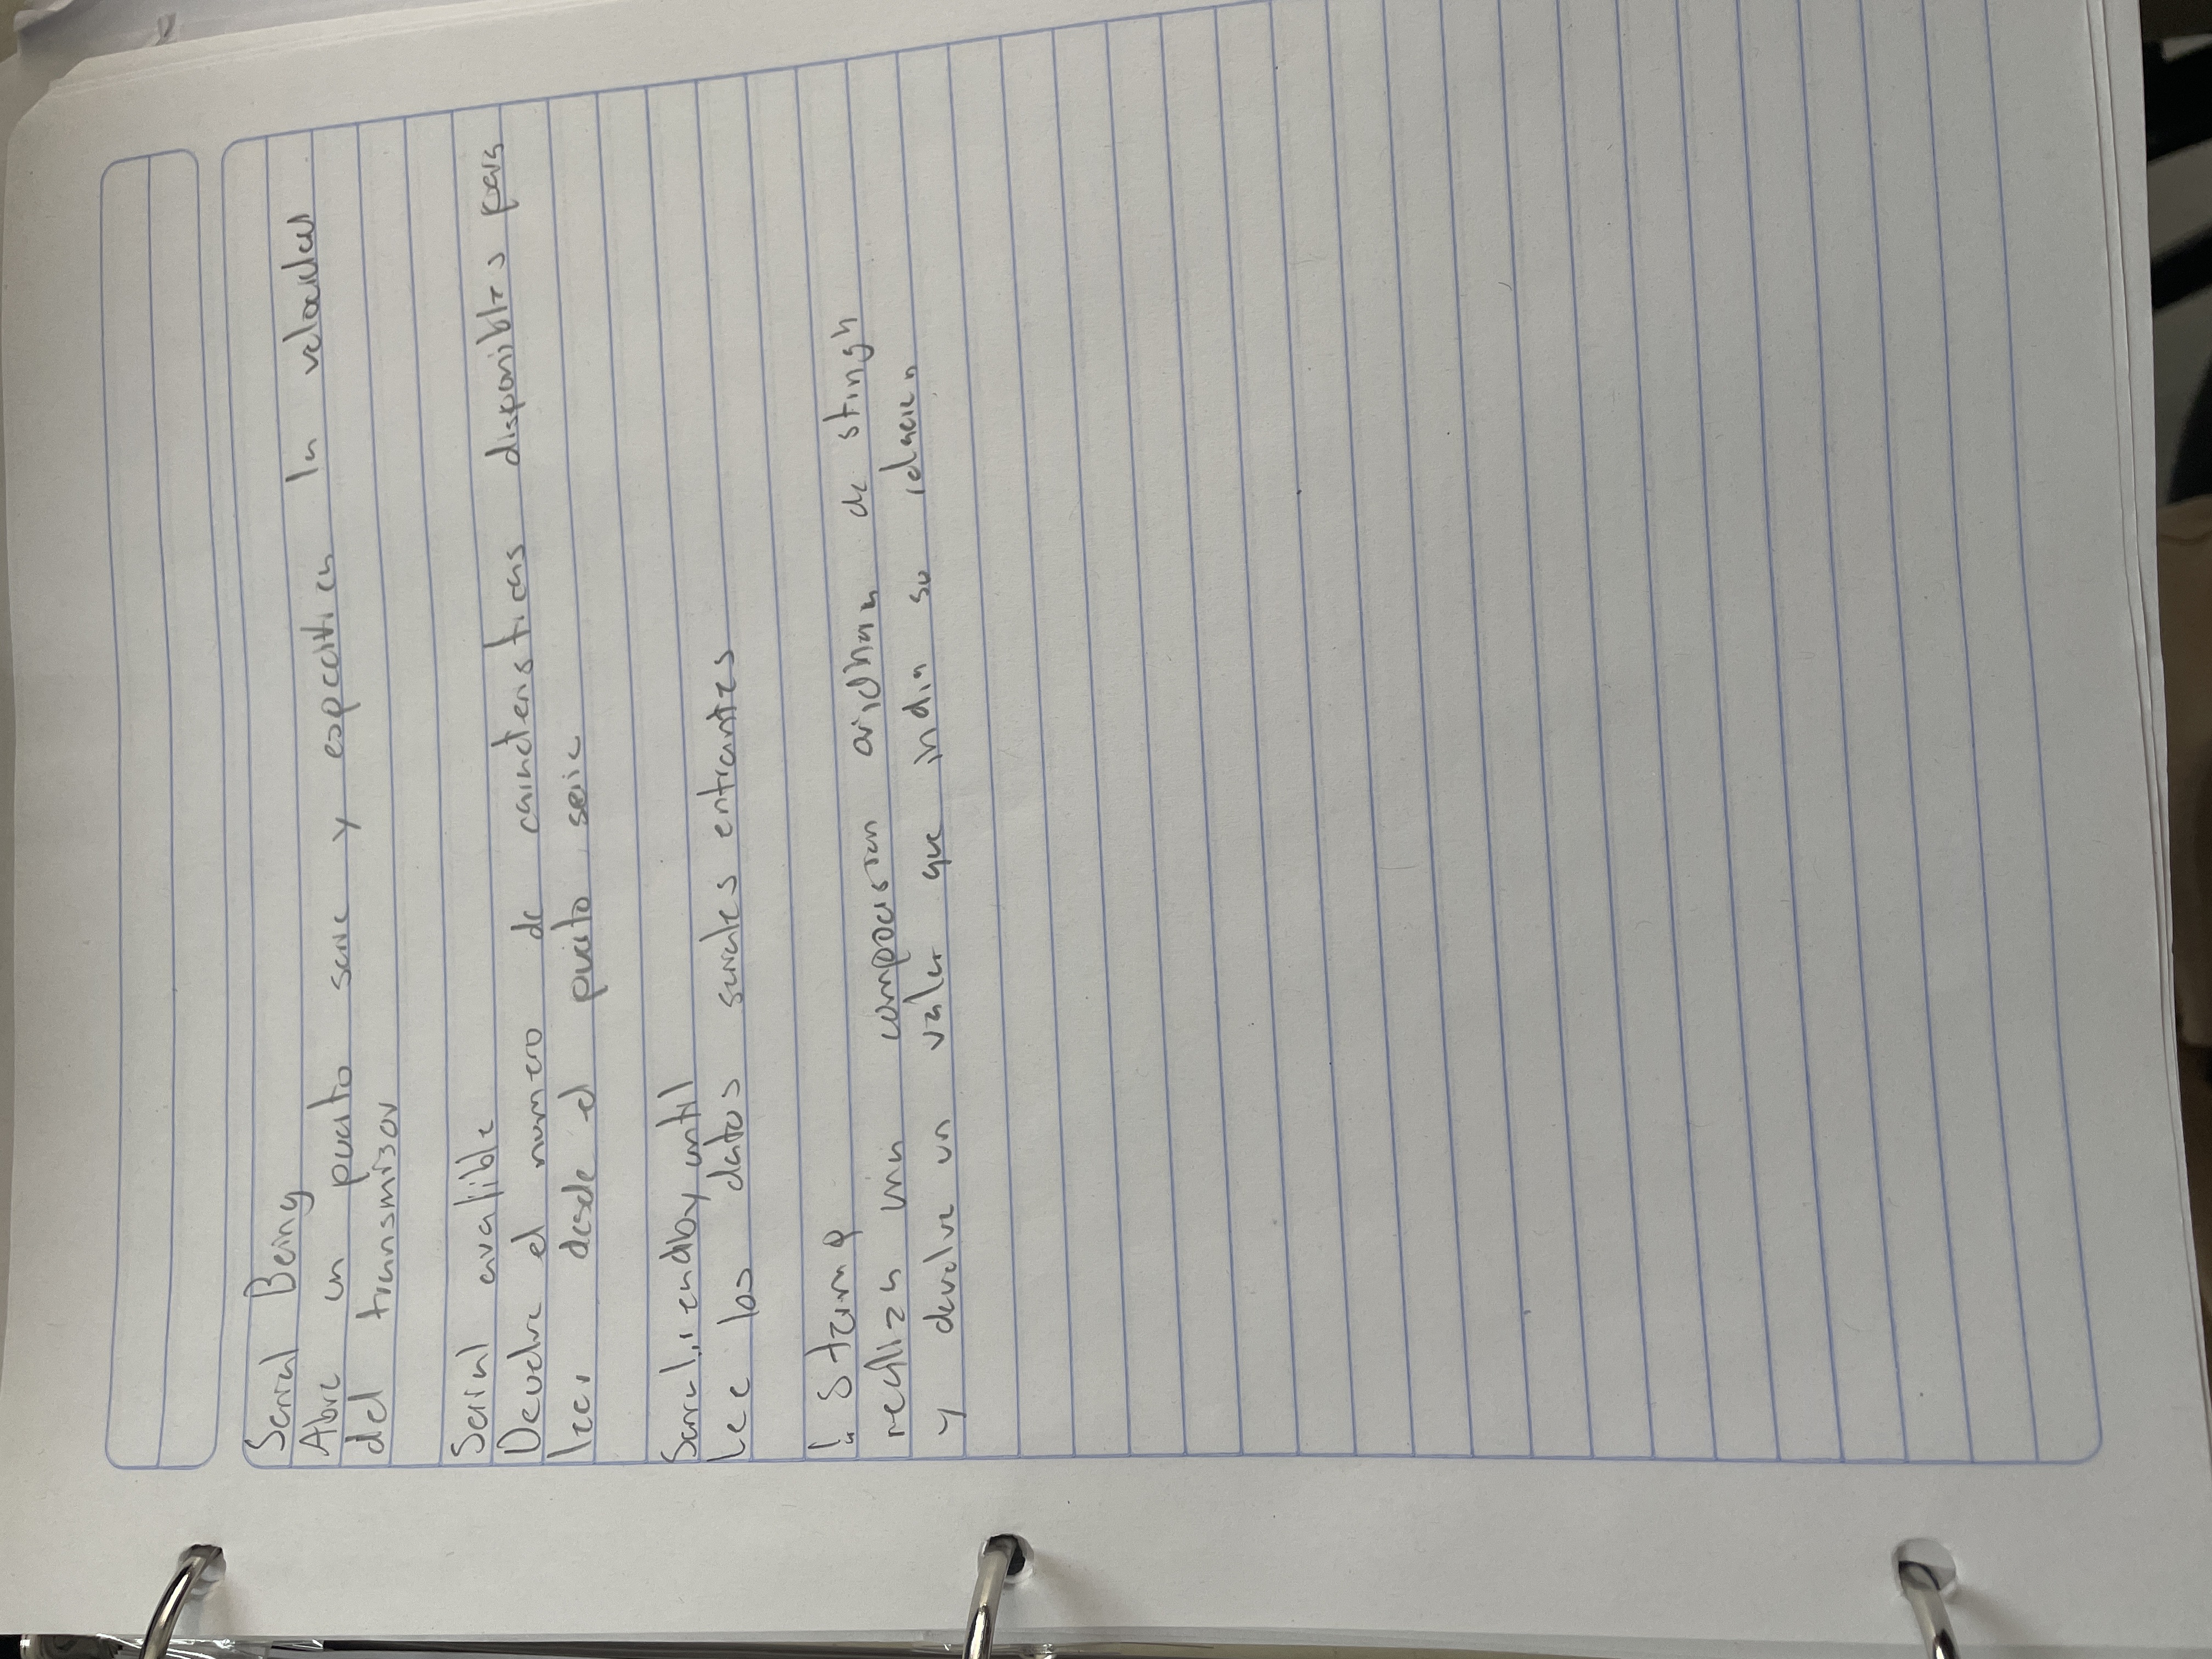 Serial Being
Abre un puerto serie y especifica la velocidad
del transmisor
Serial avalible
Devuelve el numero de caracteristicas disponibles para
leer desde el puerto serie
Serial.readbyuntil
Lee los datos seriales entrantes
realiza una comparacion ordinaria de stingh
y devolve un valor que indica su